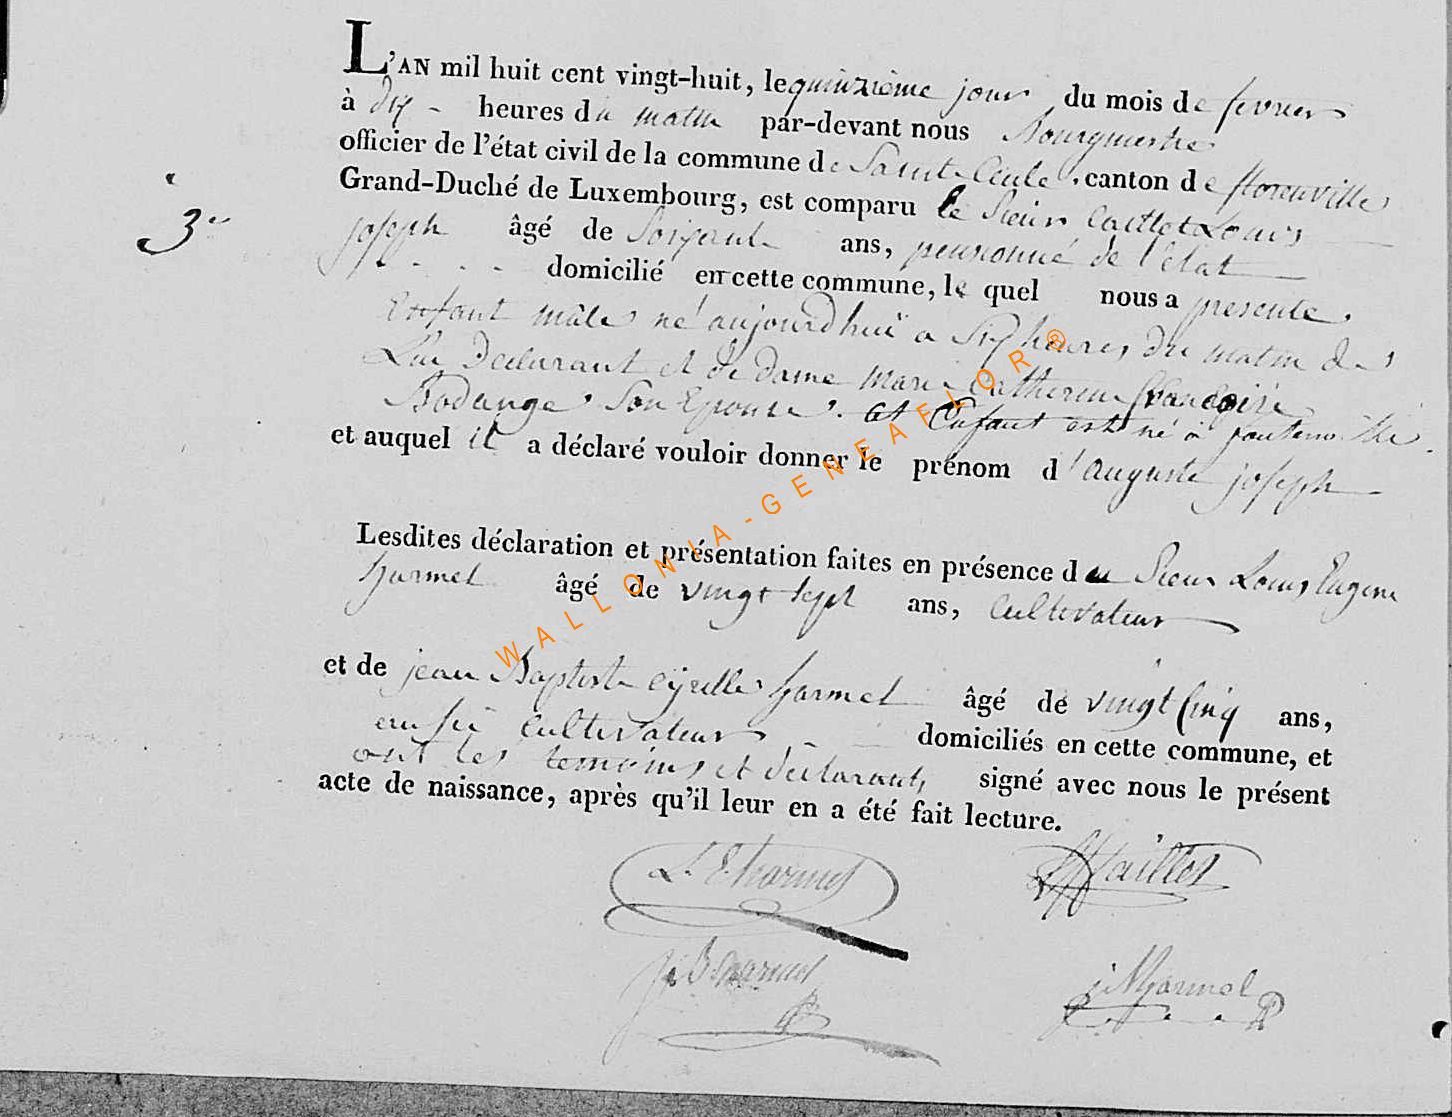 L'AN mil huit cent vingt-huit, le quinzieme jour du mois de fevrier
à dix heures du matin par-devant nous Bourgmestre
officier de l'état civil de la commune de Sainte Cécile, canton de florenville
Grand-Duché de Luxembourg, est comparu le Sieur Caillet Louis
3e
joseph âgé de Soixante ans, pensionné de l'état
domicilié en cette commune, le quel nous a presenté
Enfant mâle né aujourd'hui a Six heures du matin de
Lui Declarant et de dame Marie Catherine francoise
Bodange Son Epouse. Cet Enfant est né à fontenoille
et auquel il a déclaré vouloir donner le prénom d'auguste joseph
Lesdites déclaration et présentation faites en présence du Sieur Louis Eugene
harmel âgé de vingt Sept ans, Cultivateur
et de jean Baptiste Cyrille harmel âgé de vingt Cinq ans,
cultivateur domiciliés en cette commune, et
ont les temoins et declarant, signé avec nous le présent
acte de naissance, après qu'il leur en a été fait lecture.
L. E harmel Caillet
j B harmel j N harmel
WALLONIA-GENEAFLOR®